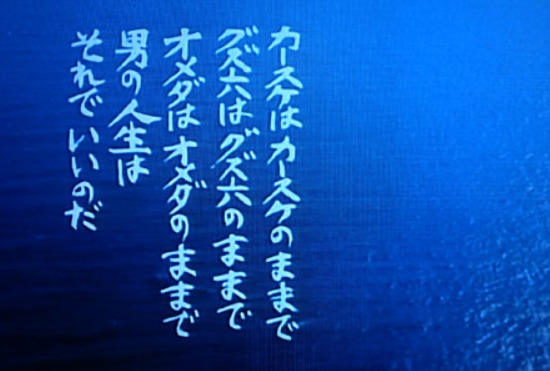 カースケはカースケのままで
グズ六はグズ六のままで
オメダはオメダのままで
男の人生は
それでいいのだ